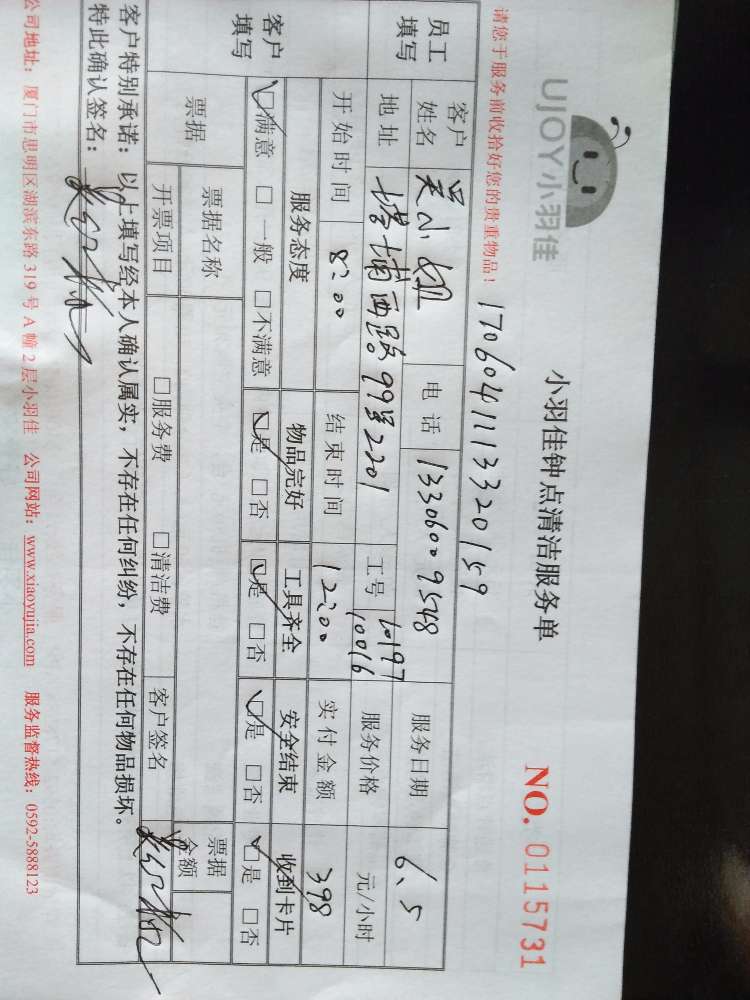 UJOY小羽佳
小羽佳钟点清洁服务单
NO. 0115731
请您于服务前收拾好您的贵重物品!
1706041113320159
员工填写
客户姓名 吴小姐 电话 13306009548 服务日期 6.5
地址 塔埔西路99号2201 工号 10197 10016 服务价格 元/小时
开始时间 8:00 结束时间 12:00 实付金额 398
客户填写
服务态度 物品完好 工具齐全 安全结束 收到卡片
☑满意 □一般 □不满意 ☑是 □否 ☑是 □否 ☑是 □否 ☑是 □否
票据 票据名称 票据金额
开票项目 □服务费 □清洁费 客户签名
客户特别承诺:以上填写经本人确认属实,不存在任何纠纷,不存在任何物品损坏。
特此确认签名:
公司地址:厦门市思明区湖滨东路 319 号 A 幢 2 层小羽佳 公司网站:www.xiaoyujia.com 服务监督热线:0592-5888123